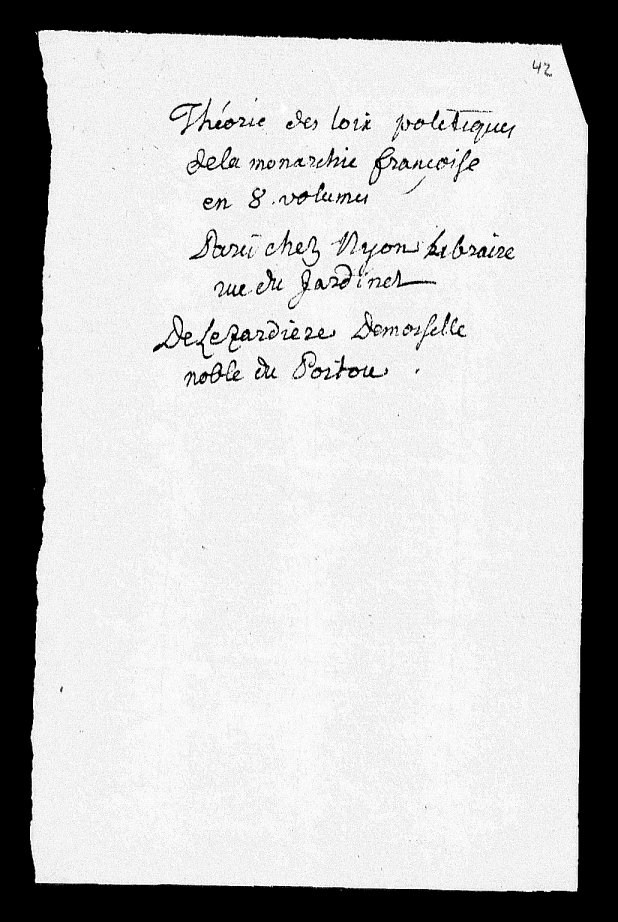 42
Théorie des loix politiques
de la monarchie françoise
en 8 volumes
Paris chez Nyon Libraire
rue du Jardinet
De Lezardiere Demoiselle
noble du Poitou.